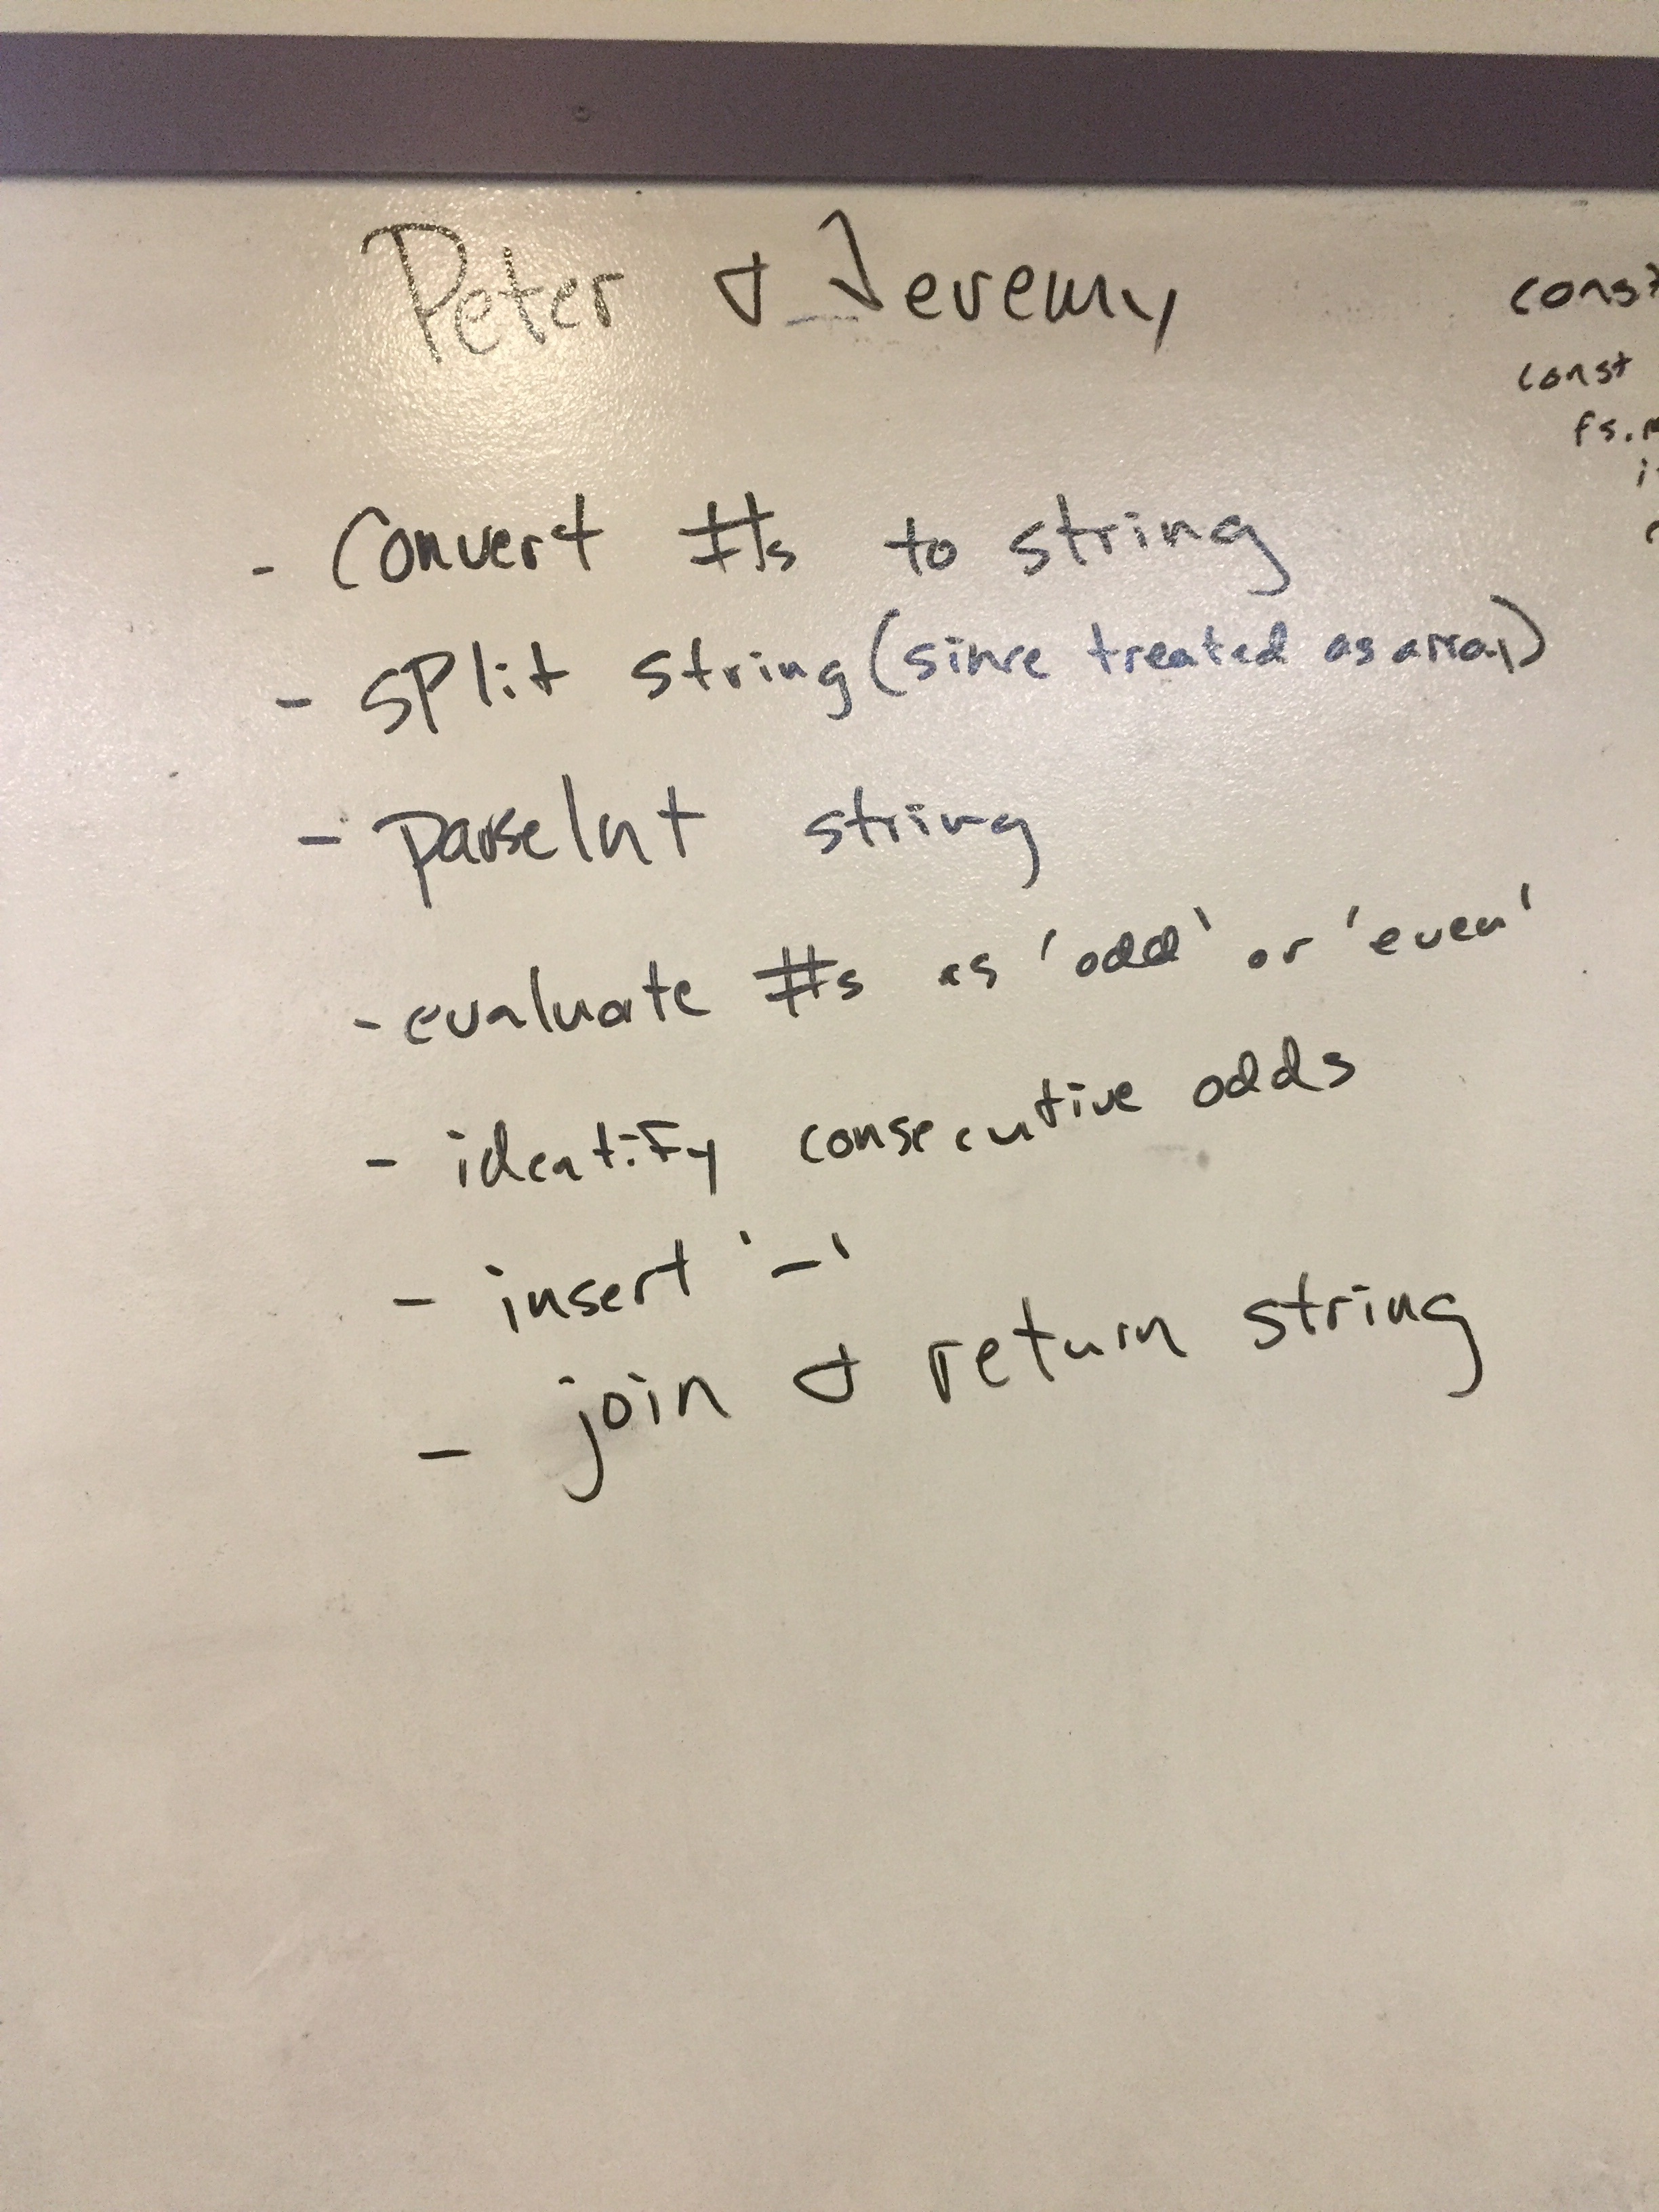 Peter & Jeremy
- Convert #s to string
- split string (since treated as array)
- parseInt string
- evaluate #s as 'odd' or 'even'
- identify consecutive odds
- insert '-'
- join & return string
const
const
fs.